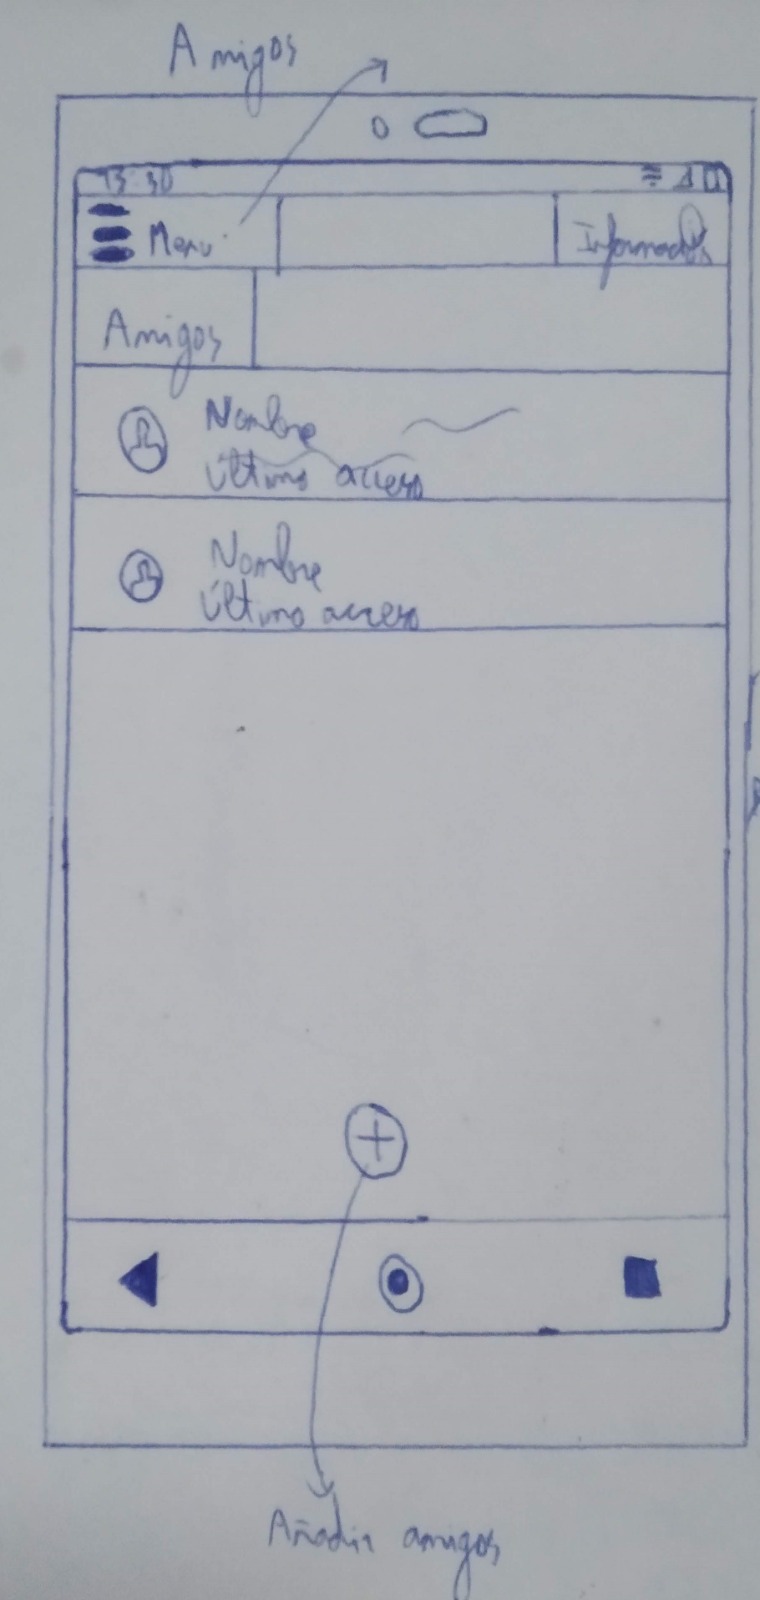 Amigos
13:30
Menu
Amigos
Nombre
último acceso
Nombre
último acceso
Añadir amigos